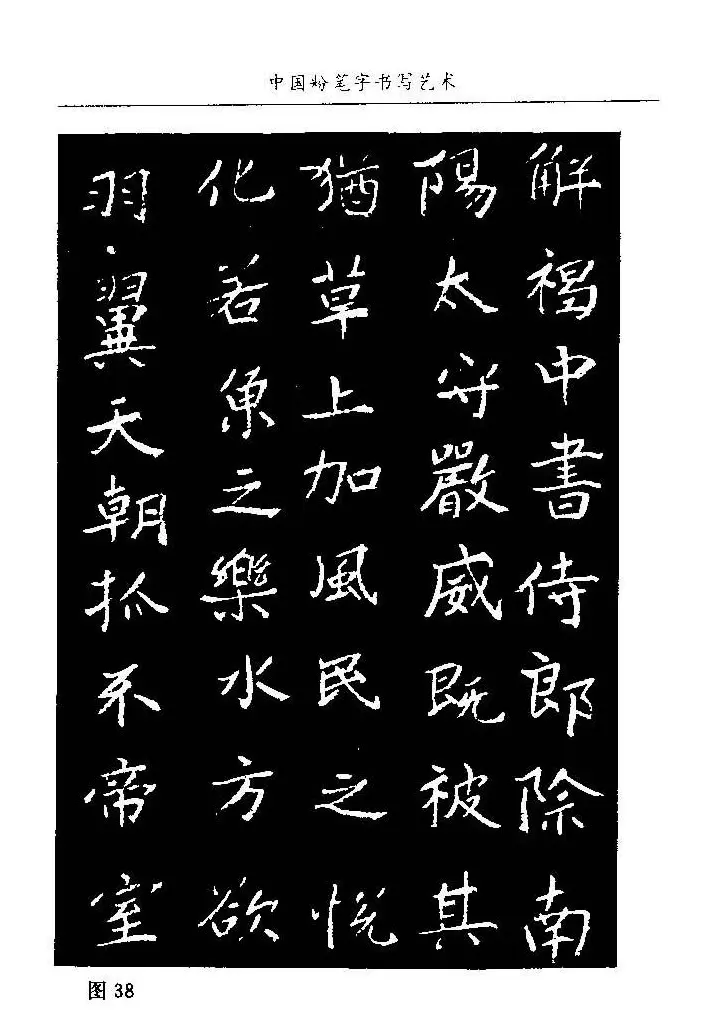 中国粉笔字书写艺术
解褐中書侍郎除南
陽太守嚴威既被其
猶草上加風民之悦
化若魚之樂水方欲
羽翼天朝抓牙帝室
图 38